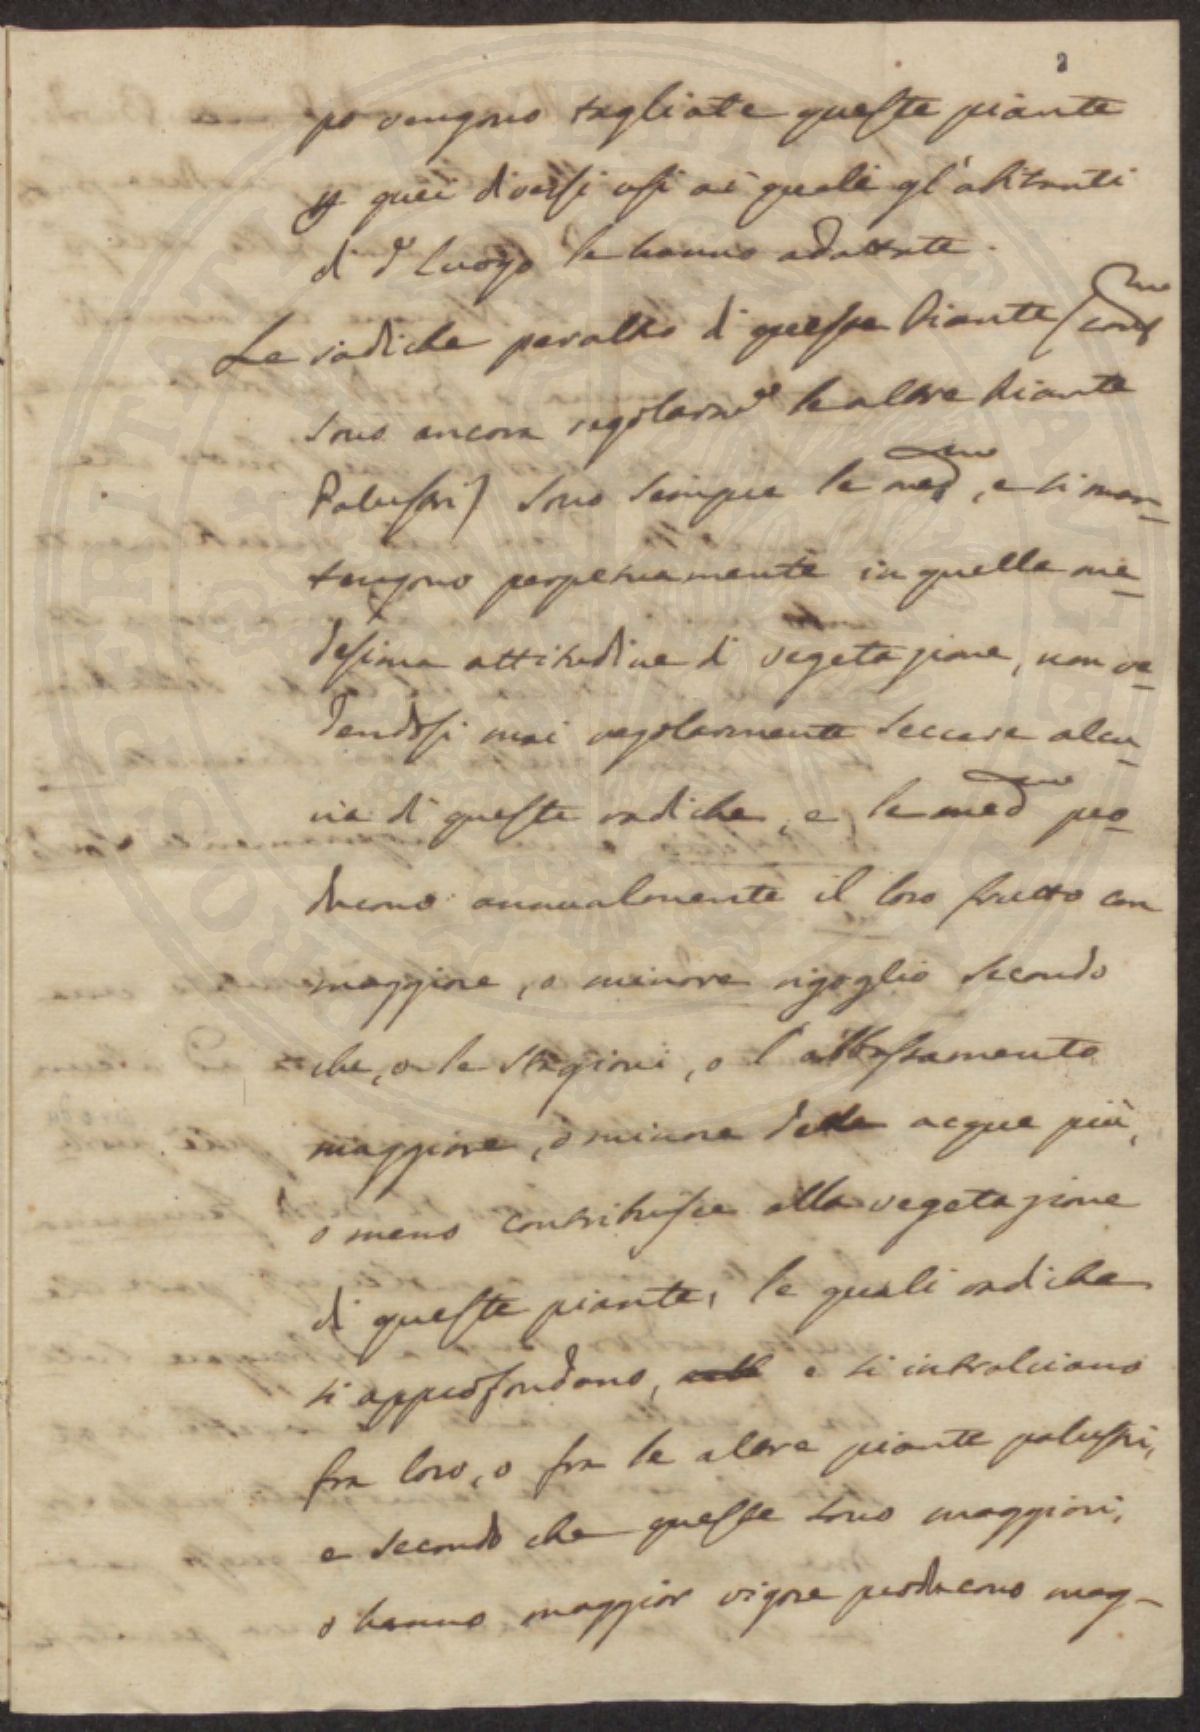 2
po vengono tagliate queste piante
p quei diversi usi ai quali gl'abitanti
di dº Luogo le hanno adattate.
Le radiche peraltro di queste Piante (come
sono ancora regolarmte le altre Piante
Palustri) sono sempre le medme, e si man-
tengono perpetuamente in quella me-
desima attitudine di vegetazione, non ve-
dendosi mai regolarmente seccare alcu-
na di queste radiche, e le medme pro-
ducono annualmente il loro frutto con
maggiore, o minore rigoglio secondo
che, o le stagioni, o l'abbassamento
maggiore, o minore delle acque più,
o meno contribuisce alla vegetazione
di queste piante, le quali radiche
si approfondano, e si intralciano
fra loro, o fra le altre piante palustri,
e secondo che queste sono maggiori,
o hanno maggior vigore producono mag-